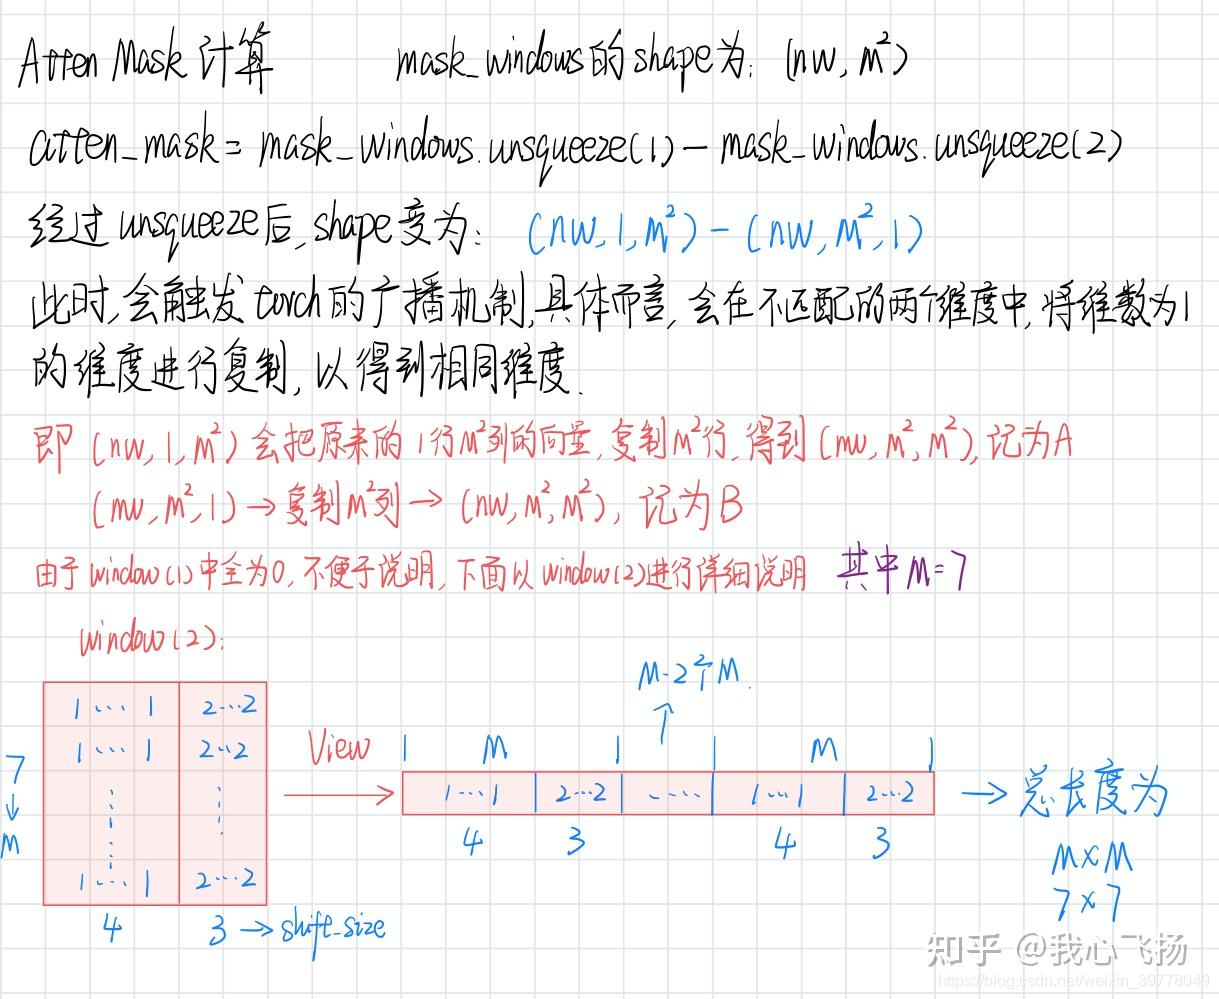 Atten Mask 计算 mask_windows的shape为: (nw, M²)
atten_mask = mask_windows.unsqueeze(1) - mask_windows.unsqueeze(2)
经过 unsqueeze后, shape变为: (nw, 1, M²) - (nw, M², 1)
此时,会触发 torch的广播机制,具体而言,会在不匹配的两个维度中,将维数为1
的维度进行复制,以得到相同维度.
即 (nw, 1, M²) 会把原来的 1行M²列的向量,复制M²行,得到 (nw, M², M²), 记为A
(nw, M², 1) → 复制M²列 → (nw, M², M²), 记为B
由于window(1)中全为0, 不便于说明, 下面以window(2)进行详细说明 其中M=7
window(2):
M-2个M.
1····1 2···2
1···1 2··2
View M M
7
1···1 2···2 ···· 1···1 2···2 → 总长度为
M
4 3 4 3
M×M
1····1 2···2
7×7
4 3 → shift_size
知乎 @我心飞扬
https://blog.csdn.net/weixin_39778049